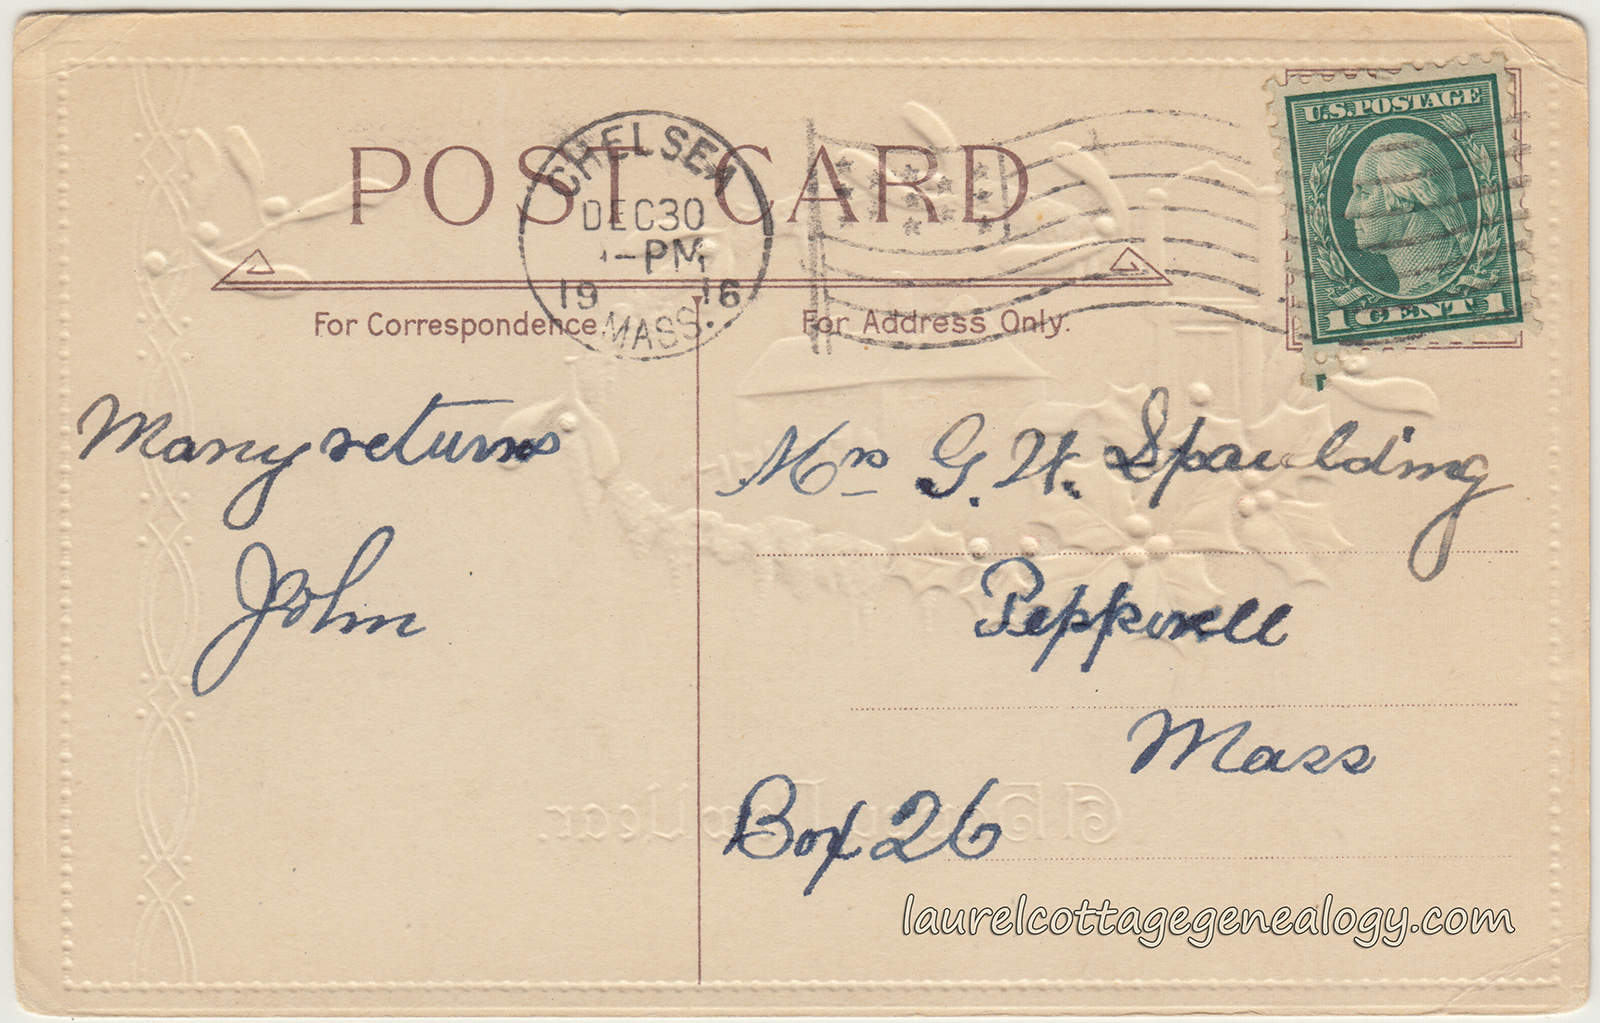 POST CARD
CHELSEA
DEC 30
1-PM
1916
MASS.
U.S. POSTAGE
1 CENT 1
For Correspondence
For Address Only.
Many returns
John
Mrs G. H. Spaulding
Pepperell
Mass
Box 26
A Happy New Year.
laurelcottagegenealogy.com